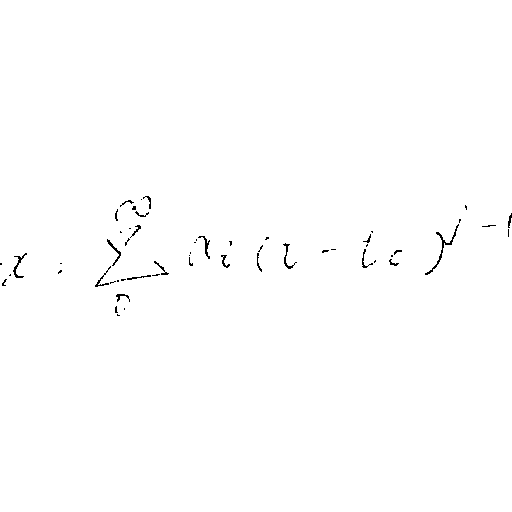 x = \sum_{0}^{\infty} a_i (t - t_0)^{i-1}